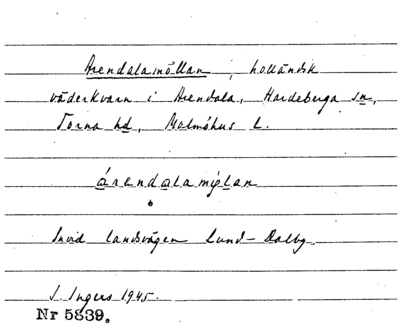 Arendalamöllan, holländsk
väderkvarn i Arendala, Hardeberga sn,
Torna hd, Malmöhus l.
árendalamö̜lan
Invid landsvägen Lund-Dalby.
I. Ingers 1945.
Nr 5839.